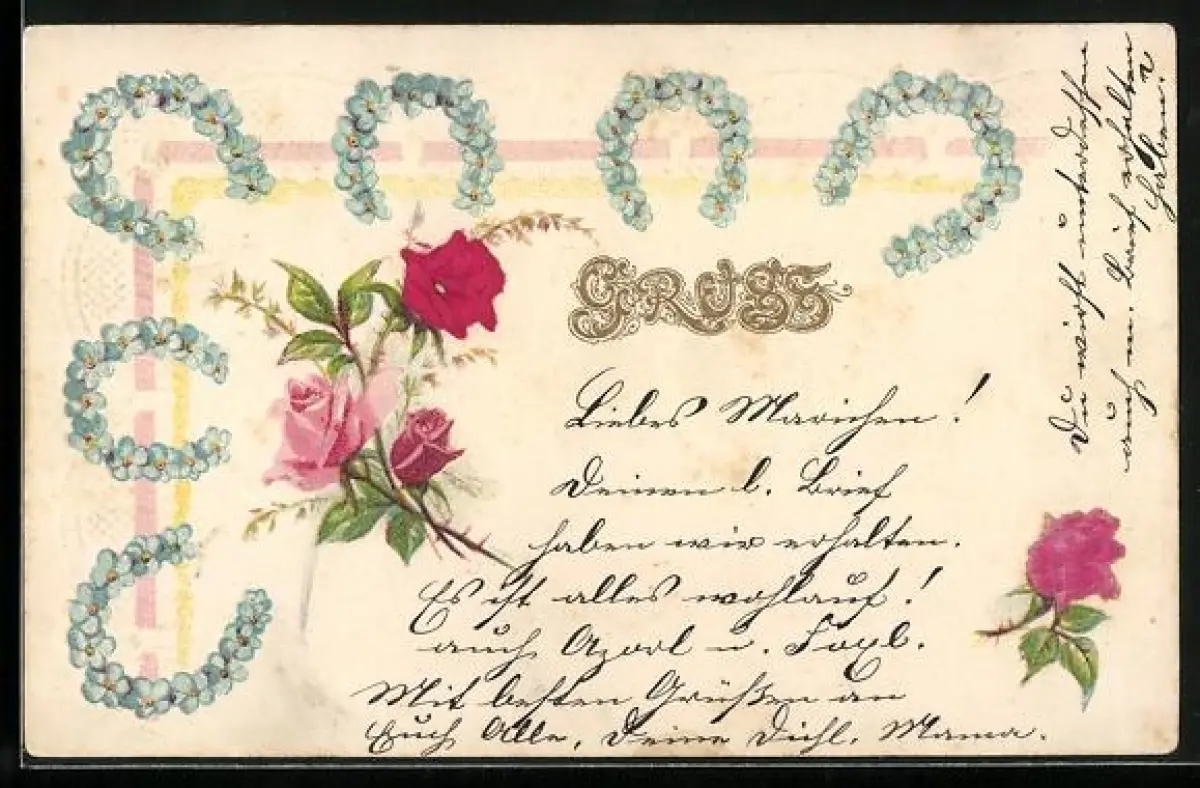 GRUSS
Liebes Mariechen!
Deinen l. Brief
haben wir erhalten.
Es ist alles wohlauf!
auch Azorl u. Foxl.
Mit besten Grüßen an
Euch Alle, Deine Dichl. Mama.
Du wirst unterdessen
auch m. Brief erhalten
haben?